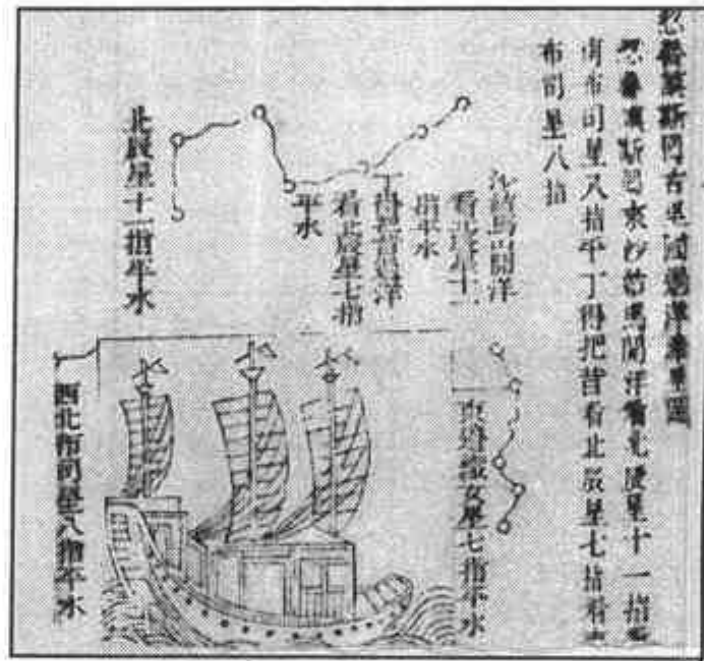 忽魯謨斯回古里國過洋牽星圖
忽魯謨斯回來沙姑馬開洋看北辰星十一指看
南布司星八指平丁得把昔看北辰星七指看
布司星八指
沙姑馬山開洋
看北辰星十一
指平水
丁得把昔過洋
看北辰星七指
平水
北辰星十一指平水
東邊織女星七指平水
西北布司星八指平水